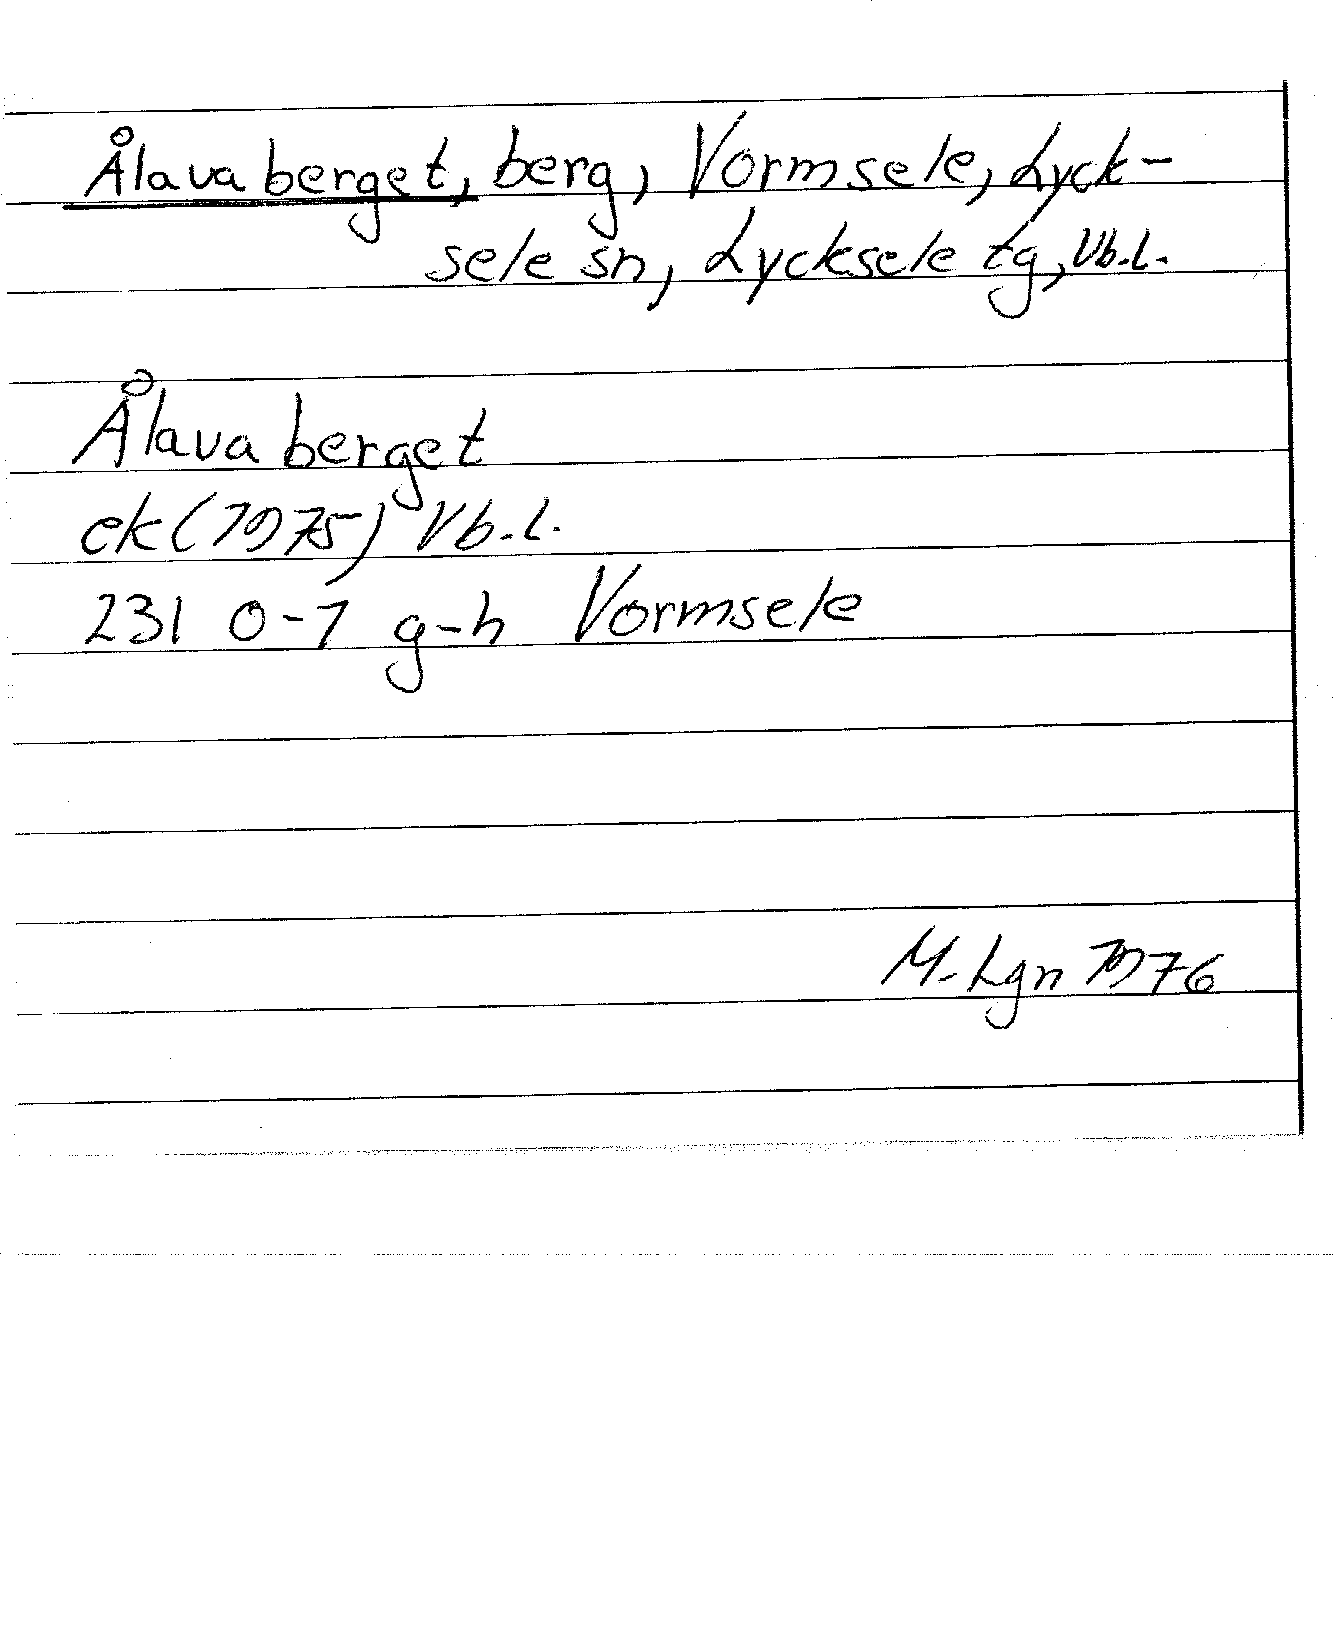 Ålavaberget, berg, Vormsele, Lyck-
sele sn, Lycksele tg, Vb.l.
Ålavaberget
ek (1975) Vb.l.
231 0-1 g-h Vormsele
M.Lgn 1976